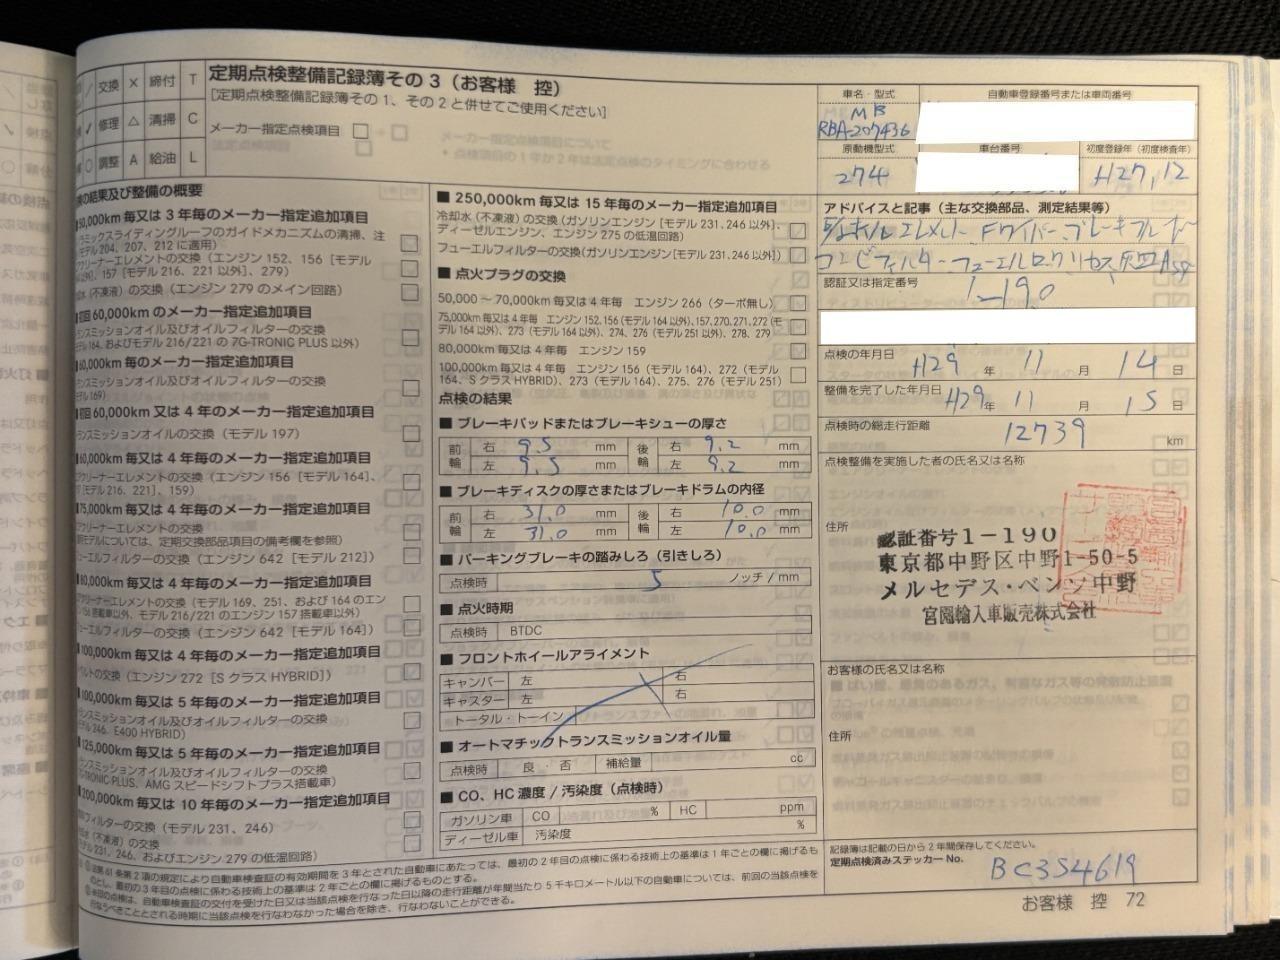 交換 X 締付 T
修理 △ 清掃 C
調整 A 給油 L
定期点検整備記録簿その3（お客様　控）
[定期点検整備記録簿その1、その2と併せてご使用ください]
メーカー指定点検項目
の結果及び整備の概要
50,000km 毎又は 3 年毎のメーカー指定追加項目
ラミックスライディングルーフのガイドメカニズムの清掃、注
モデル 204、207、212 に適用）
アクリーナーエレメントの交換（エンジン 152、156 [モデル
以外]、157 [モデル 216、221 以外]、279）
水（不凍液）の交換（エンジン 279 のメイン回路）
初回 60,000km のメーカー指定追加項目
ンスミッションオイル及びオイルフィルターの交換
164、およびモデル 216/221 の 7G-TRONIC PLUS 以外）
60,000km 毎のメーカー指定追加項目
ンスミッションオイル及びオイルフィルターの交換
169）
初回 60,000km 又は 4 年毎のメーカー指定追加項目
ランスミッションオイルの交換（モデル 197）
60,000km 毎又は 4 年毎のメーカー指定追加項目
アクリーナーエレメントの交換（エンジン 156 [モデル 164]、
[モデル 216、221]、159）
75,000km 毎又は 4 年毎のメーカー指定追加項目
アクリーナーエレメントの交換
モデルについては、定期交換部品項目の備考欄を参照）
ューエルフィルターの交換（エンジン 642 [モデル 212]）
80,000km 毎又は 4 年毎のメーカー指定追加項目
アクリーナーエレメントの交換（モデル 169、251、および 164 のエン
搭載車以外、モデル 216/221 のエンジン 157 搭載車以外）
ューエルフィルターの交換（エンジン 642 [モデル 164]）
100,000km 毎又は 4 年毎のメーカー指定追加項目
ベルトの交換（エンジン 272 [S クラス HYBRID]）
100,000km 毎又は 5 年毎のメーカー指定追加項目
ンスミッションオイル及びオイルフィルターの交換
モデル 246、E400 HYBRID）
125,000km 毎又は 5 年毎のメーカー指定追加項目
ンスミッションオイル及びオイルフィルターの交換
7G-TRONIC PLUS、AMG スピードシフトプラス搭載車）
200,000km 毎又は 10 年毎のメーカー指定追加項目
フィルターの交換（モデル 231、246）
水（不凍液）の交換
231、246、およびエンジン 279 の低温回路）
■ 250,000km 毎又は 15 年毎のメーカー指定追加項目
冷却水（不凍液）の交換（ガソリンエンジン [モデル 231、246 以外]、
ディーゼルエンジン、エンジン 275 の低温回路）
フューエルフィルターの交換（ガソリンエンジン[モデル 231、246 以外]）
■ 点火プラグの交換
50,000 ～ 70,000km 毎又は 4 年毎　エンジン 266（ターボ無し）
75,000km 毎又は 4 年毎　エンジン 152、156（モデル 164 以外）、157、270、271、272（モ
デル 164 以外）、273（モデル 164 以外）、274、276（モデル 251 以外）、278、279
80,000km 毎又は 4 年毎　エンジン 159
100,000km 毎又は 4 年毎　エンジン 156（モデル 164）、272（モデル
164、S クラス HYBRID）、273（モデル 164）、275、276（モデル 251）
点検の結果
■ ブレーキパッドまたはブレーキシューの厚さ
前輪 右 9.5 mm 後輪 右 9.2 mm
左 9.5 mm 左 9.2 mm
■ ブレーキディスクの厚さまたはブレーキドラムの内径
前輪 右 31.0 mm 後輪 右 10.0 mm
左 31.0 mm 左 10.0 mm
■ パーキングブレーキの踏みしろ（引きしろ）
点検時 5 ノッチ / mm
■ 点火時期
点検時 BTDC
■ フロントホイールアライメント
キャンバー 左 右
キャスター 左 右
トータル・トーイン
■ オートマチックトランスミッションオイル量
点検時 良・否 補給量 cc
■ CO、HC 濃度 / 汚染度（点検時）
ガソリン車 CO % HC ppm
ディーゼル車 汚染度 %
車名・型式
MB
RBA-207436
自動車登録番号または車両番号
原動機型式
274
車台番号
初度登録年（初度検査年）
H27,12
アドバイスと記事（主な交換部品、測定結果等）
オイル エレメント Fワイパー ブレーキフルード
コンビフィルター フューエル
認証又は指定番号
1-190
点検の年月日
H29 年 11 月 14 日
整備を完了した年月日
H29 年 11 月 15 日
点検時の総走行距離
12739 km
点検整備を実施した者の氏名又は名称
住所
認証番号1-190
東京都中野区中野1-50-5
メルセデス・ベンツ中野
宮園輸入車販売株式会社
お客様の氏名又は名称
住所
記録簿は記載の日から 2 年間保存してください。
定期点検済みステッカー No.
BC3S4619
法第 61 条第 2 項の規定により自動車検査証の有効期間を 3 年とされた自動車にあたっては、最初の 2 年目の点検に係わる技術上の基準は 1 年ごとの欄に掲げるも
のとし、最初の 3 年目の点検に係わる技術上の基準は 2 年ごとの欄に掲げるものとする。
の点検は、自動車検査証の交付を受けた日又は当該点検を行なった日以降の走行距離が年間当たり 5 千キロメートル以下の自動車については、前回の当該点検を
行なうべきこととされる時期に当該点検を行なわなかった場合を除き、行なわないことができる。
お客様　控　72